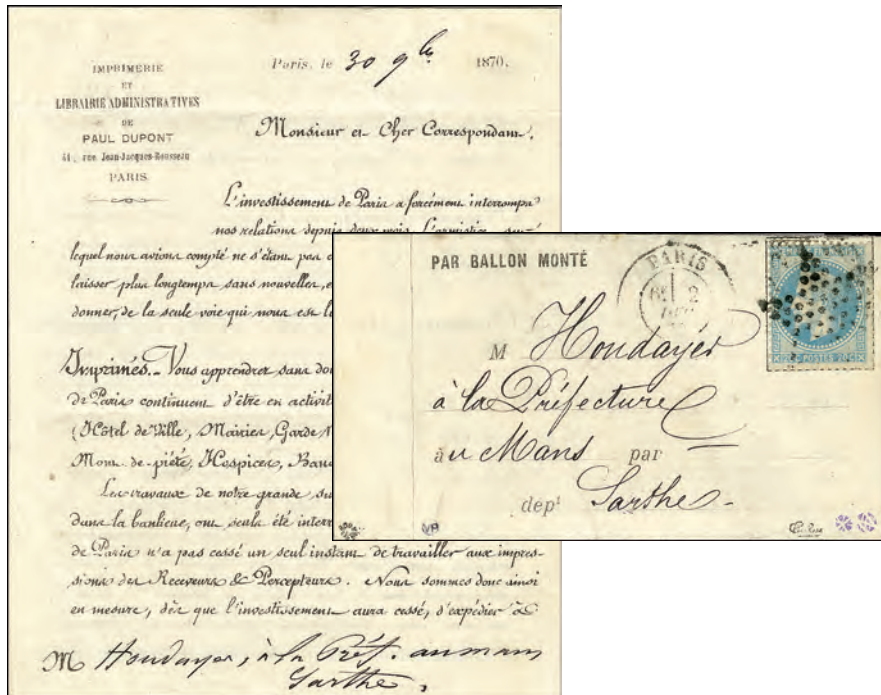 IMPRIMERIE
ET
LIBRAIRIE ADMINISTRATIVES
DE
PAUL DUPONT
41, rue Jean-Jacques-Rousseau
PARIS
Paris, le 30 9bre 1870.
Monsieur et Cher Correspondant,
L'investissement de Paris a forcément interrompu
nos relations depuis deux mois. L'armistice sur
lequel nous avions compté ne s'étant pas
laisser plus longtemps sans nouvelles,
donner, de la seule voie qui nous est
Imprimés._ Vous apprendrez sans
de Paris continuent d'être en
(Hôtel de Ville, Mairies, Garde
Mont-de-piété, Hospices,
Les travaux de notre grande
dans la banlieue, ont seuls été
de Paris n'a pas cessé un seul instant de travailler aux impres-
sions des Receveurs & Percepteurs. Nous sommes donc ainsi
en mesure, dès que l'investissement aura cessé, d'expédier à
M Houdayer, à la Préf. au mans
Sarthe.
PAR BALLON MONTÉ
PARIS
2
M Houdayer
à la Préfecture
à u Mans par
dept Sarthe.
POSTES 20 C